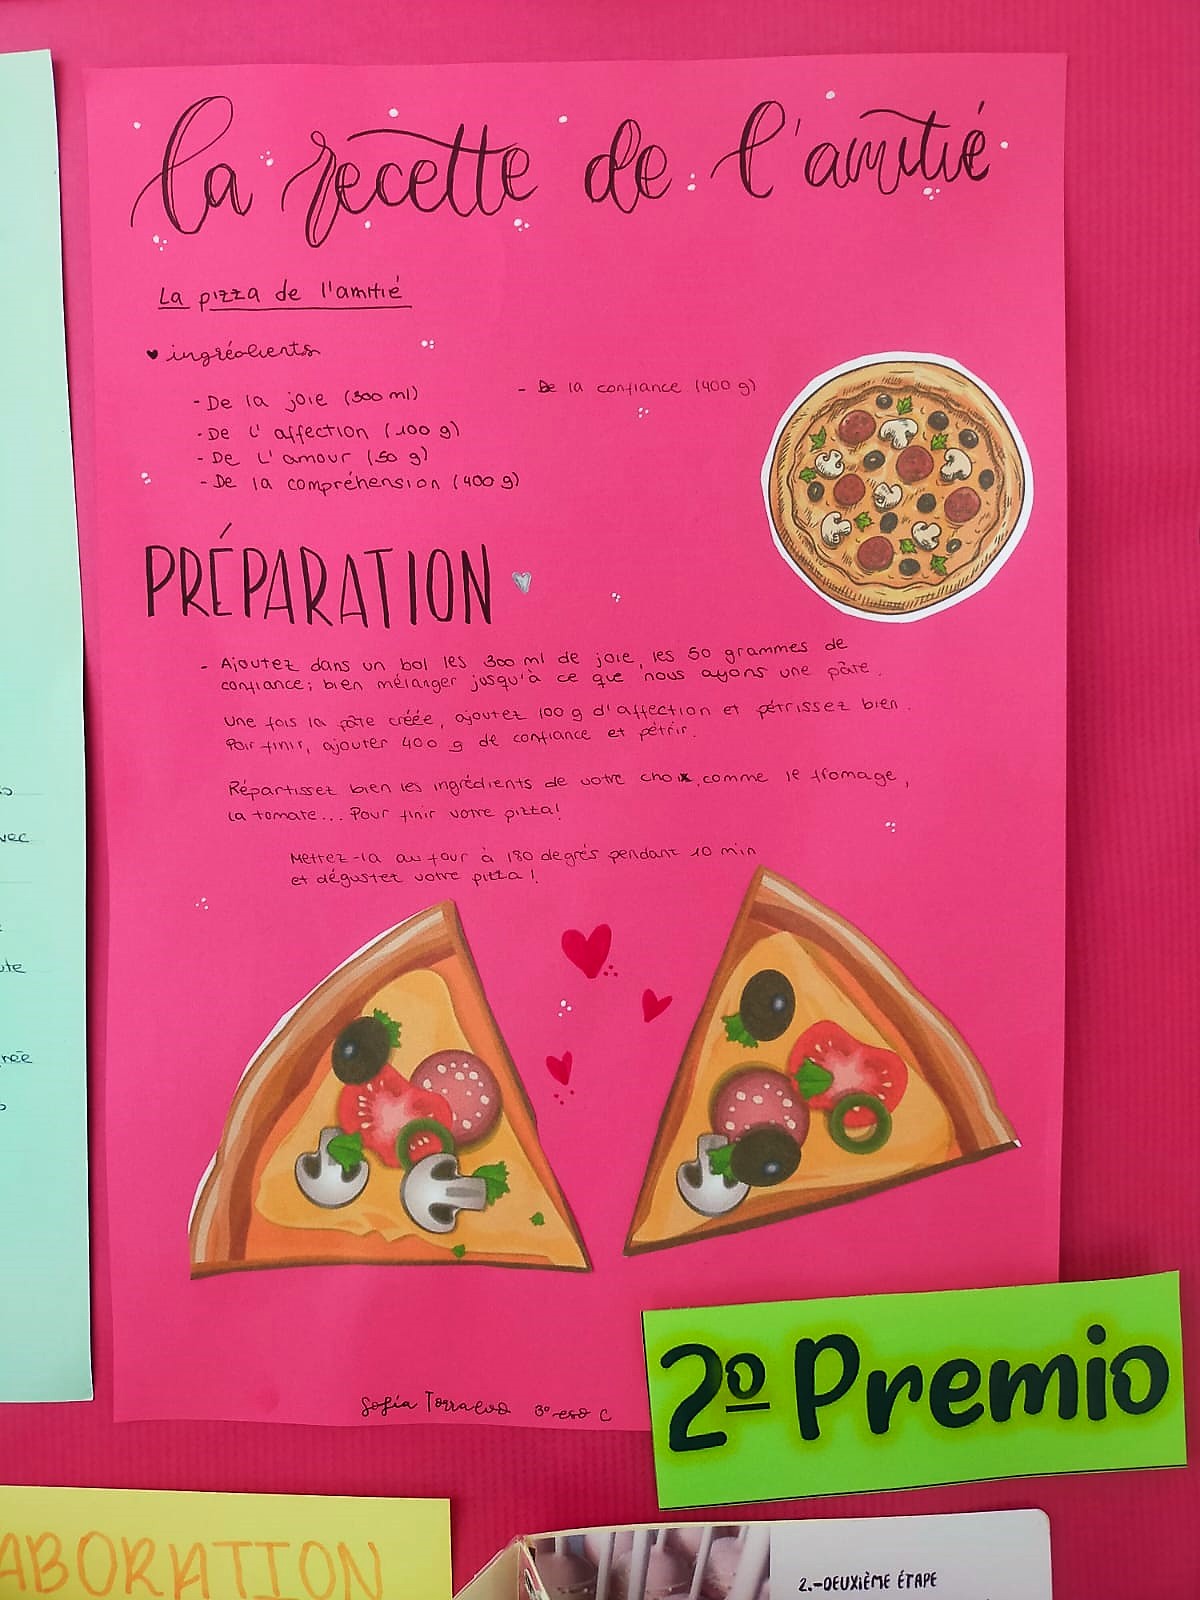 la recette de l'amitié
La pizza de l'amitié
ingrédients
- De la joie (300 ml)
- De l'affection (100 g)
- De L'amour (50 g)
- De la compréhension (400 g)
- De la confiance (400 g)
PRÉPARATION
- Ajoutez dans un bol les 300 ml de joie, les 50 grammes de
confiance; bien mélanger jusqu'à ce que nous ayons une pâte.
Une fois la pâte créée, ajoutez 100 g d'affection et pétrissez bien.
Pour finir, ajouter 400 g de confiance et pétrir.
Répartissez bien les ingrédients de votre choix, comme le fromage,
la tomate... Pour finir votre pizza!
Mettez-la au four à 180 degrés pendant 10 min
et dégustez votre pizza!
Sofía Torralvo 3º eso C
2º Premio
vec
née
ABORATION
2.-DEUXIÈME ÉTAPE